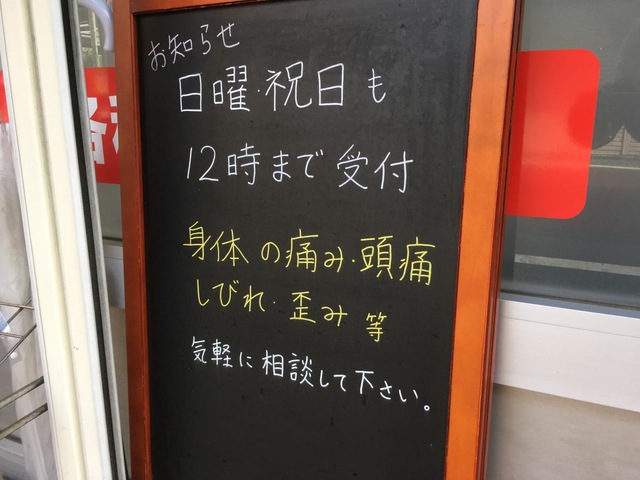 お知らせ
日曜・祝日も
12時まで受付
身体の痛み・頭痛
しびれ・歪み等
気軽に相談して下さい。